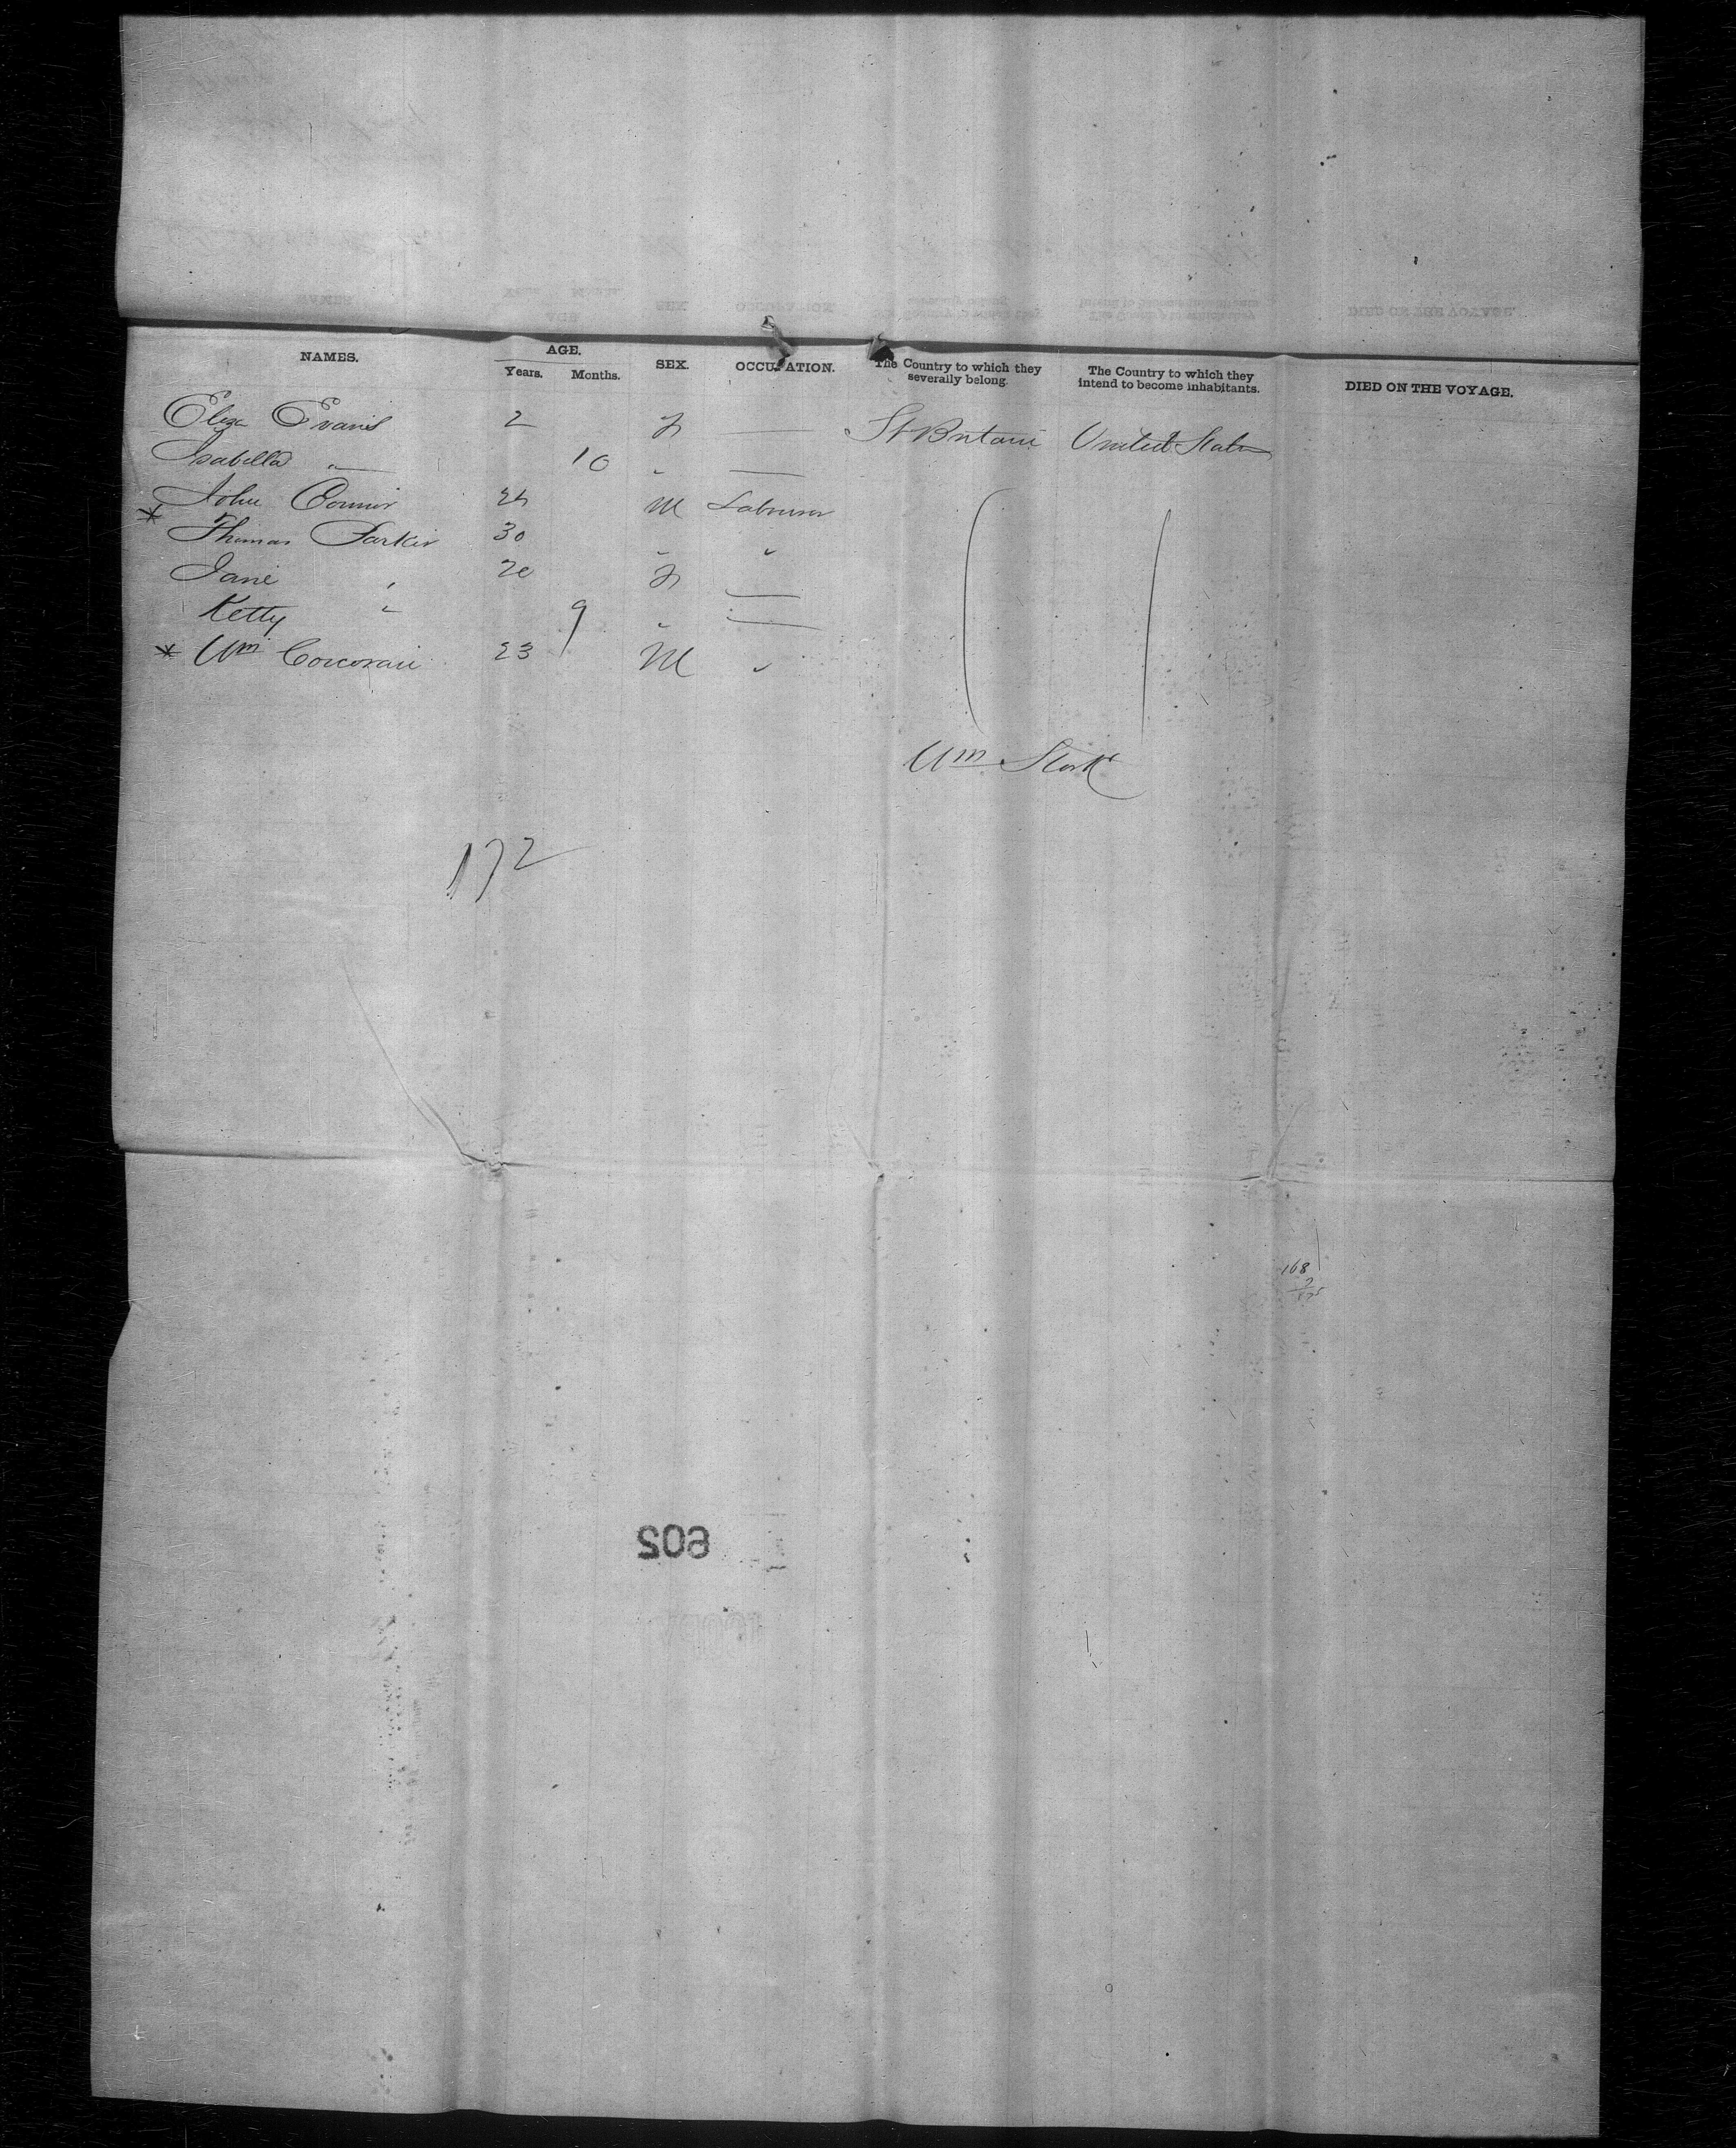 NAMES. AGE. Years. Months. SEX. OCCUPATION. The Country to which they severally belong. The Country to which they intend to become inhabitants. DIED ON THE VOYAGE.
Eliza Evans 2 F — Gt Britain United States
Isabella " 10 " —
John Connor 24 M Labourer
* Thomas Parker 30 " "
Jane " 20 F —
Ketty " 9 " —
* Wm Corcoran 23 M "
Wm
172
168
7
175